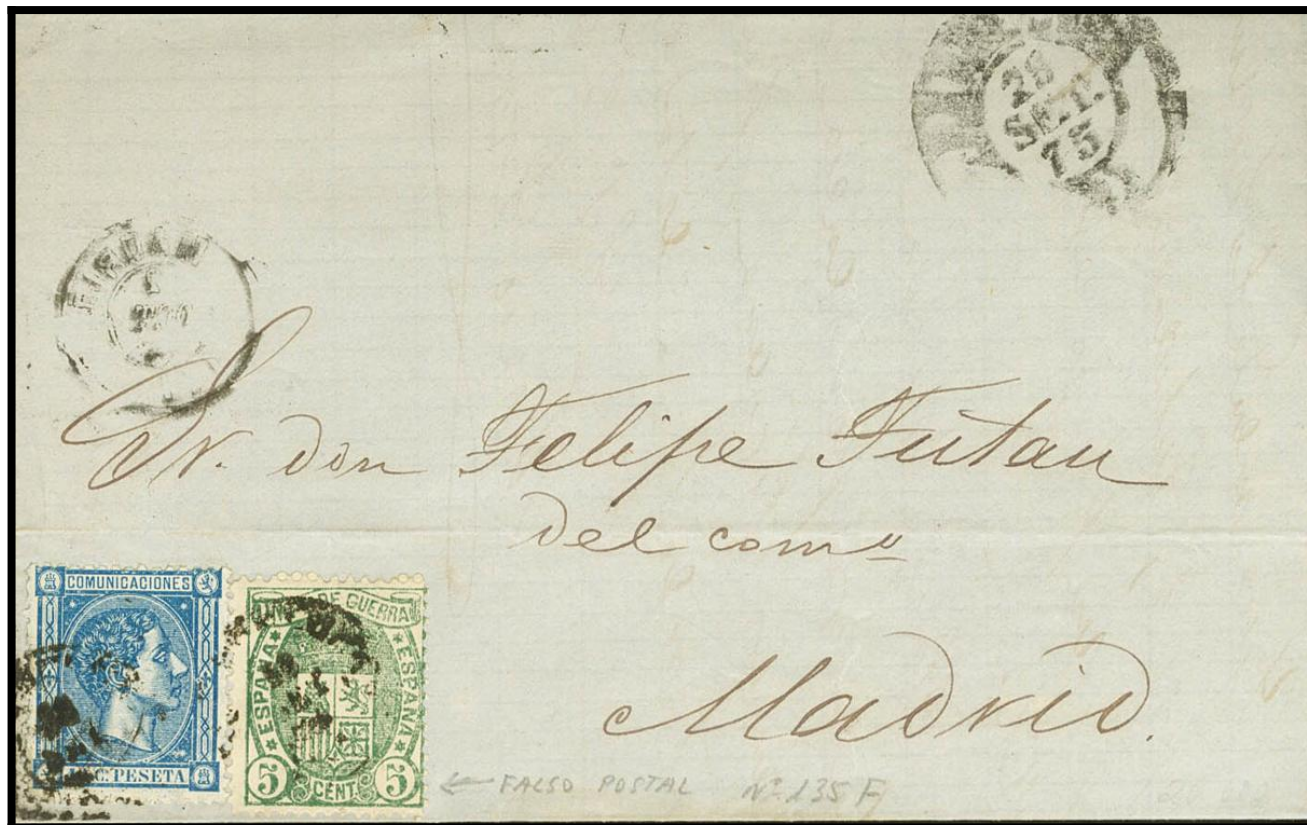 28
SET.
75
Sr. don Felipe Futau
del comº
Madrid.
COMUNICACIONES
C. PESETA
DE GUERRA
ESPAÑA
ESPAÑA
5 CENT. 5
← FALSO POSTAL Nº 135 F